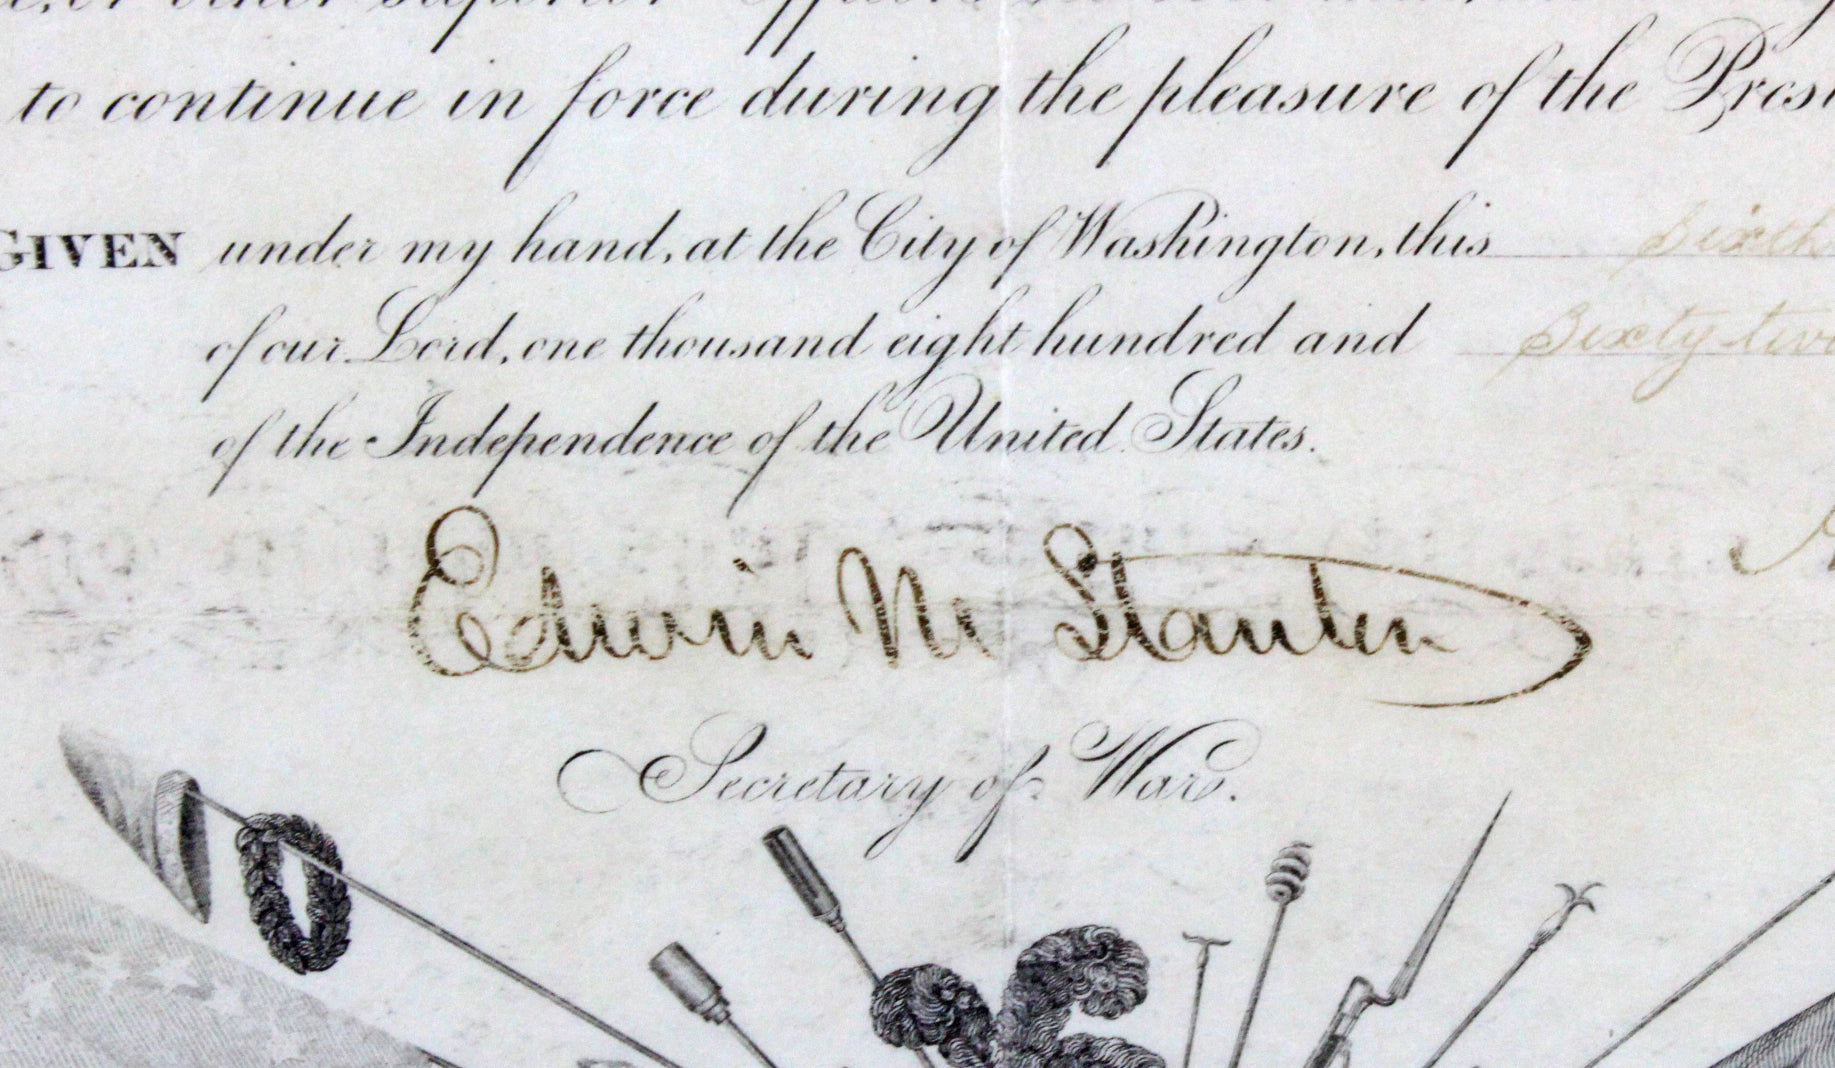 or other superior
to continue in force during the pleasure of the Presi
GIVEN under my hand, at the City of Washington, this sixth
of our Lord, one thousand eight hundred and Sixty two
of the Independence of the United States.
Edwin M Stanton
Secretary of War.